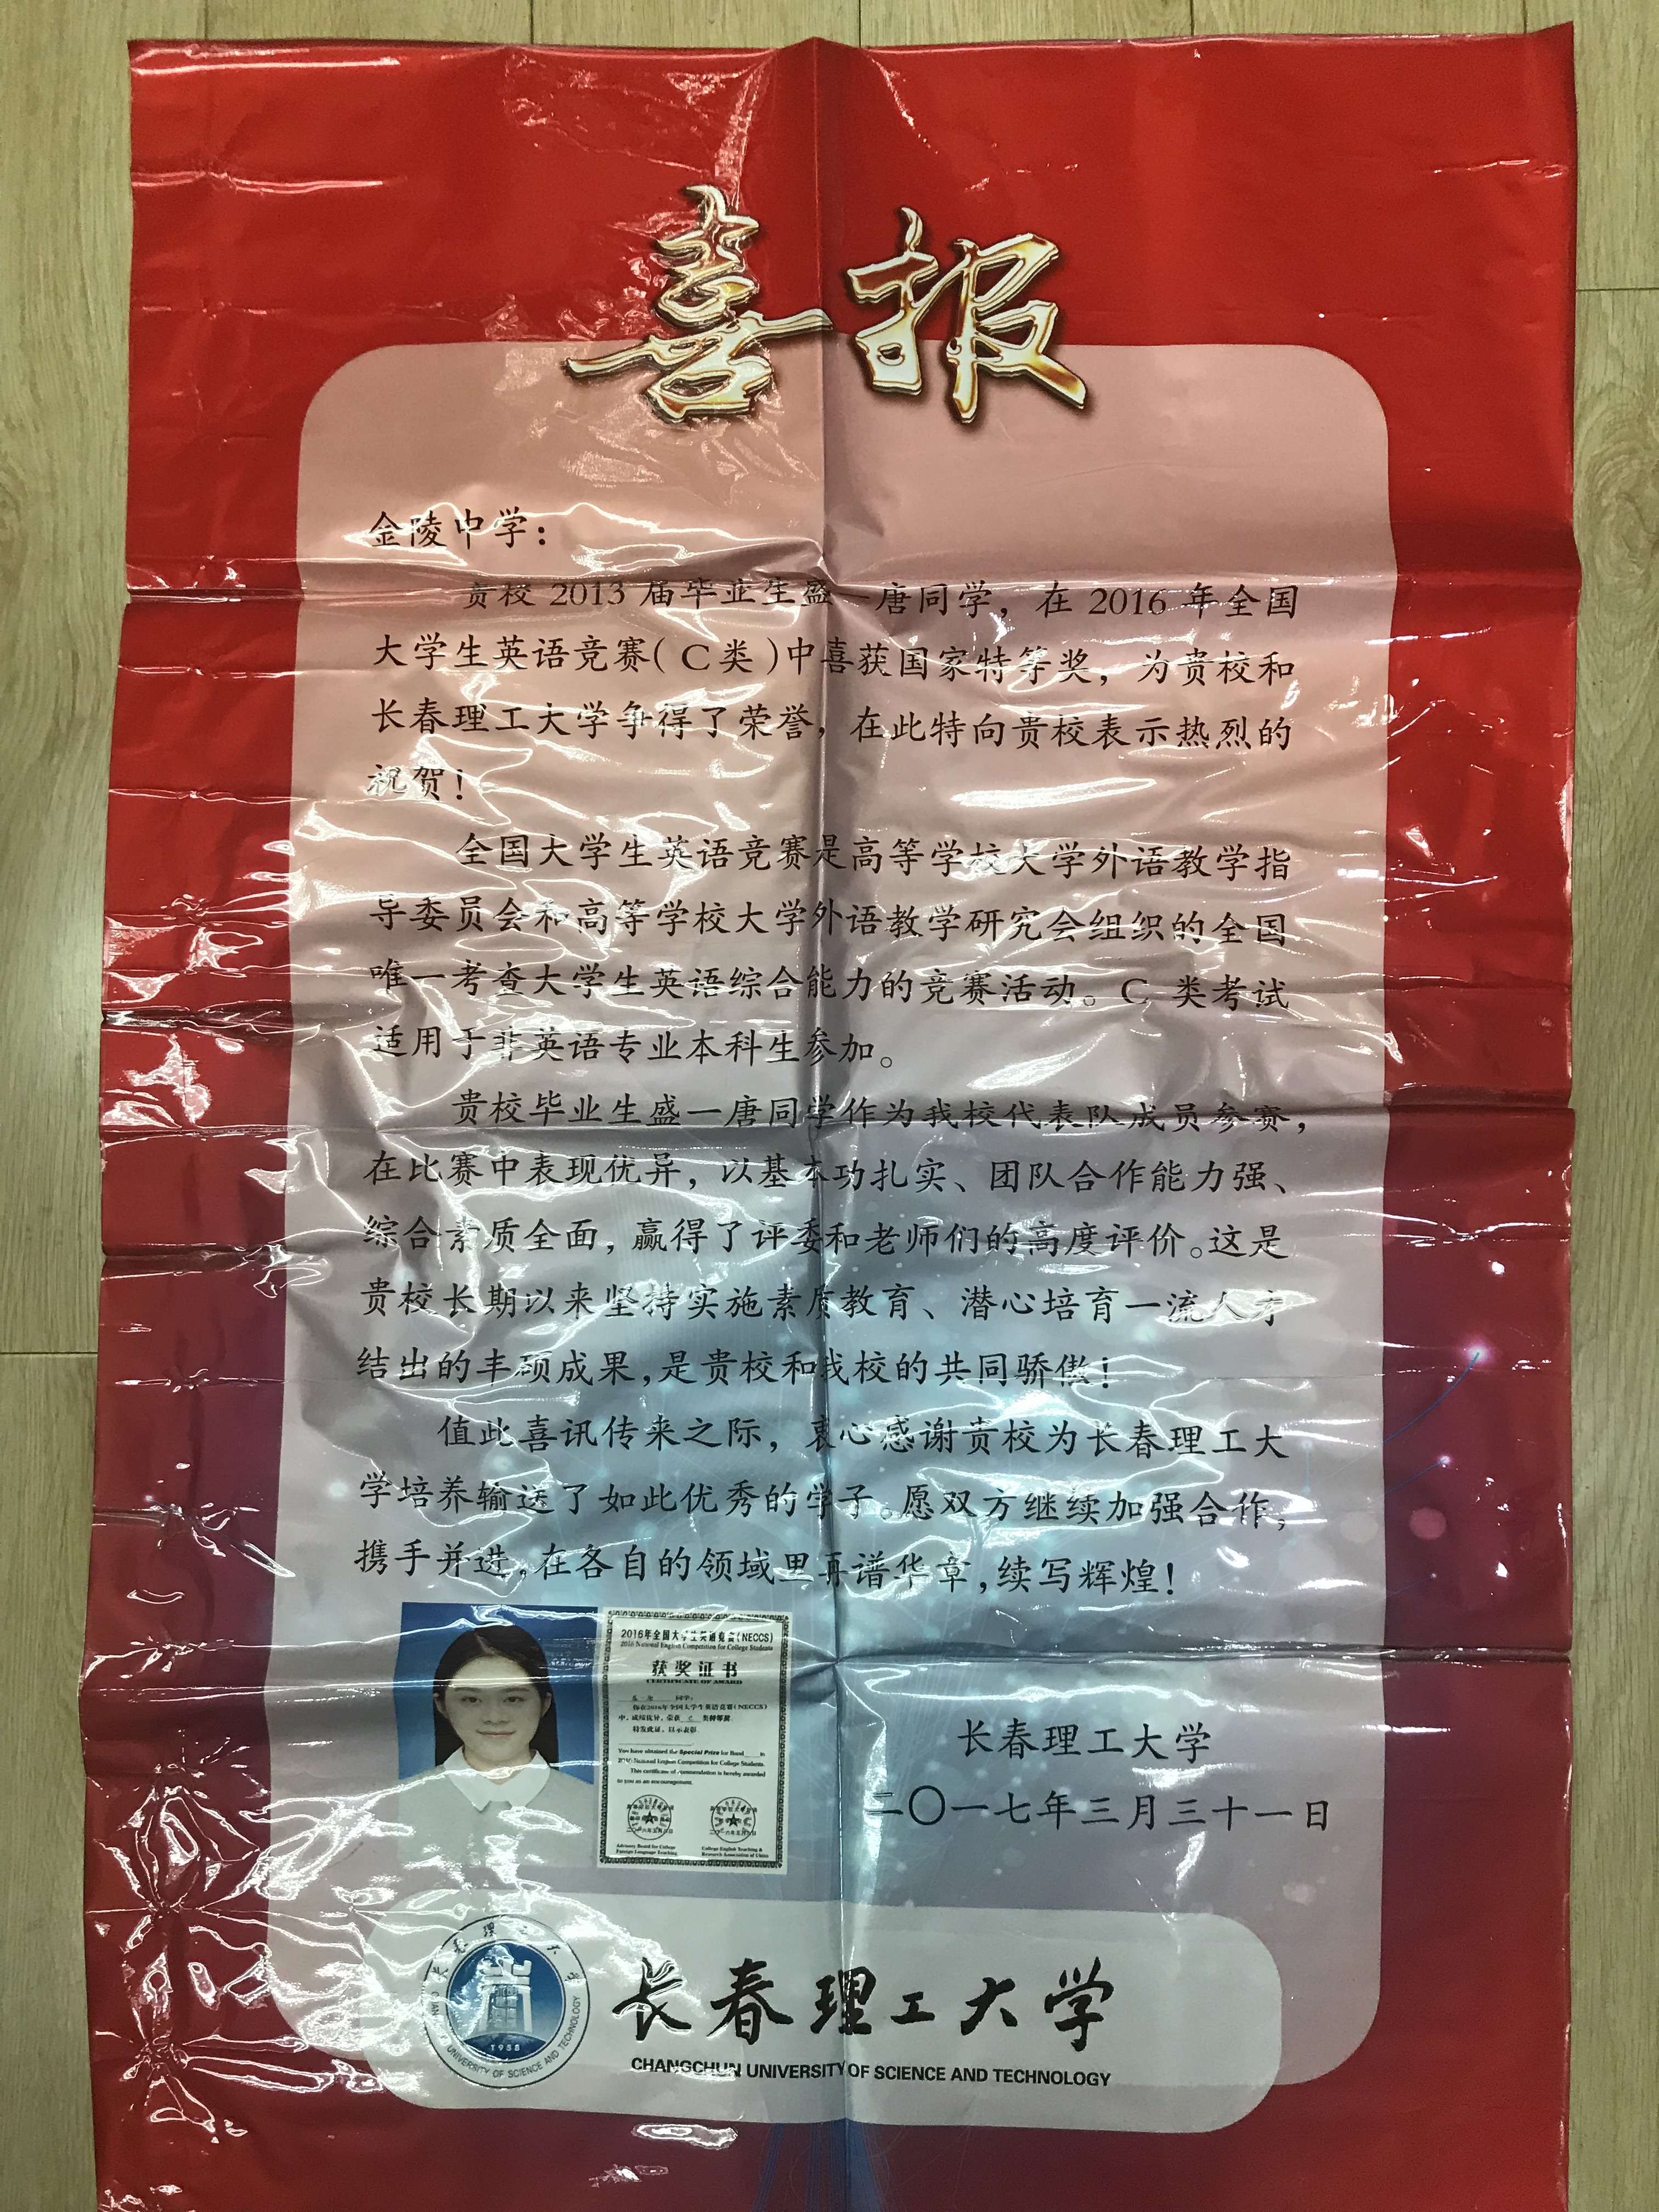 喜报
金陵中学：
贵校 2013 届毕业生盛一唐同学，在 2016 年全国
大学生英语竞赛（C类）中喜获国家特等奖，为贵校和
长春理工大学争得了荣誉，在此特向贵校表示热烈的
祝贺！
全国大学生英语竞赛是高等学校大学外语教学指
导委员会和高等学校大学外语教学研究会组织的全国
唯一考查大学生英语综合能力的竞赛活动。C 类考试
适用于非英语专业本科生参加。
贵校毕业生盛一唐同学作为我校代表队成员参赛，
在比赛中表现优异，以基本功扎实、团队合作能力强、
综合素质全面，赢得了评委和老师们的高度评价。这是
贵校长期以来坚持实施素质教育、潜心培育一流人才
结出的丰硕成果，是贵校和我校的共同骄傲！
值此喜讯传来之际，衷心感谢贵校为长春理工大
学培养输送了如此优秀的学子。愿双方继续加强合作，
携手并进，在各自的领域里再谱华章，续写辉煌！
2016年全国大学生英语竞赛(NECCS)
2016 National English Competition for College Students
获奖证书
CERTIFICATE OF AWARD
同学：
你在2016年全国大学生英语竞赛(NECCS)
中，成绩优异，荣获 C 类特等奖
特发此证，以示表彰
You have obtained the Special Prize for Band in
2016 National English Competition for College Students.
This certificate of commendation is hereby awarded
to you as an encouragement.
Advisory Board for College
Foreign Language Teaching
College English Teaching &
Research Association of China
长春理工大学
二〇一七年三月三十一日
长春理工大学
UNIVERSITY OF SCIENCE AND TECHNOLOGY
1958
长春理工大学
CHANGCHUN UNIVERSITY OF SCIENCE AND TECHNOLOGY